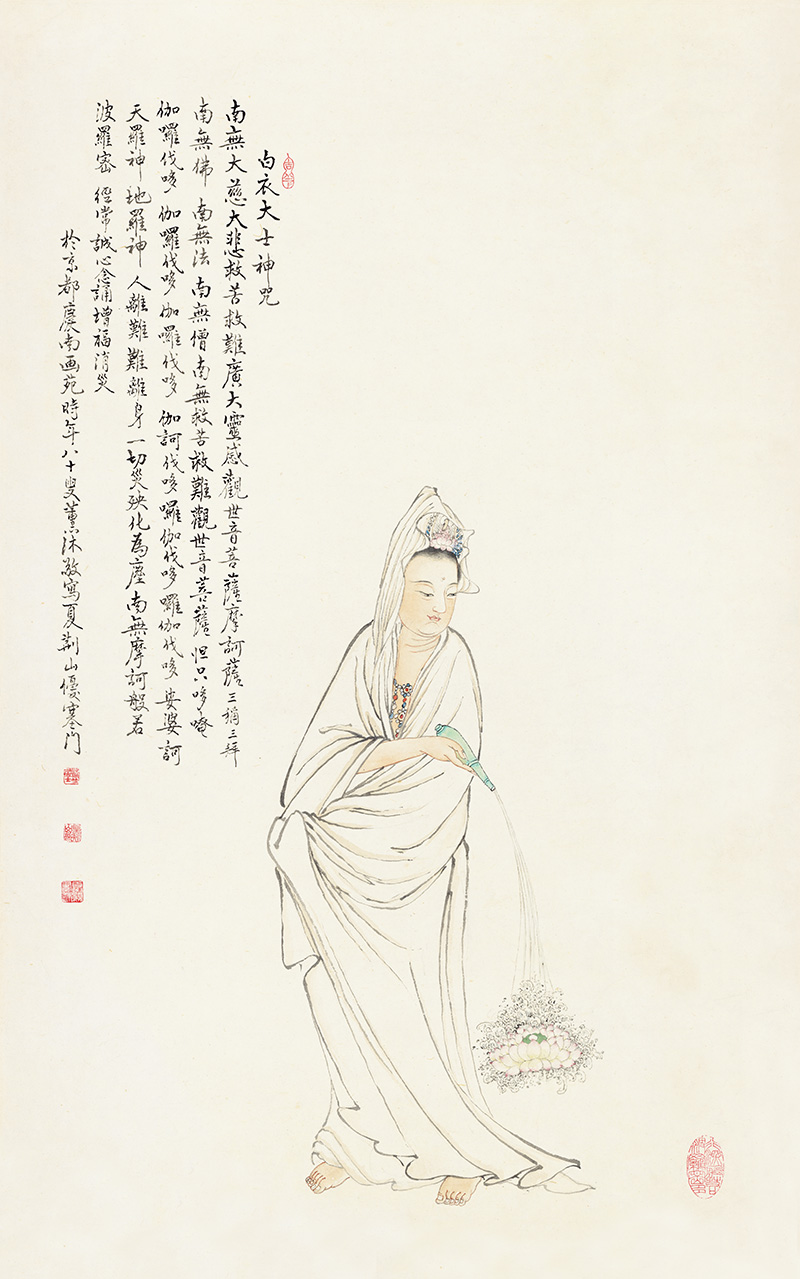 白衣大士神咒
南無大慈大悲救苦救難廣大靈感觀世音菩薩摩訶薩三稱三拜
南無佛 南無法 南無僧 南無救苦救難觀世音菩薩 怛只哆唵
伽囉伐哆 伽囉伐哆 伽囉伐哆 伽訶伐哆 囉伽伐哆 囉伽伐哆 娑婆訶
天羅神 地羅神 人離難 難離身 一切災殃化為塵 南無摩訶般若
波羅密 經常誠心念誦增福消災
於京都慶南画苑時年八十叟薰沐敬寫夏荊山優塞門